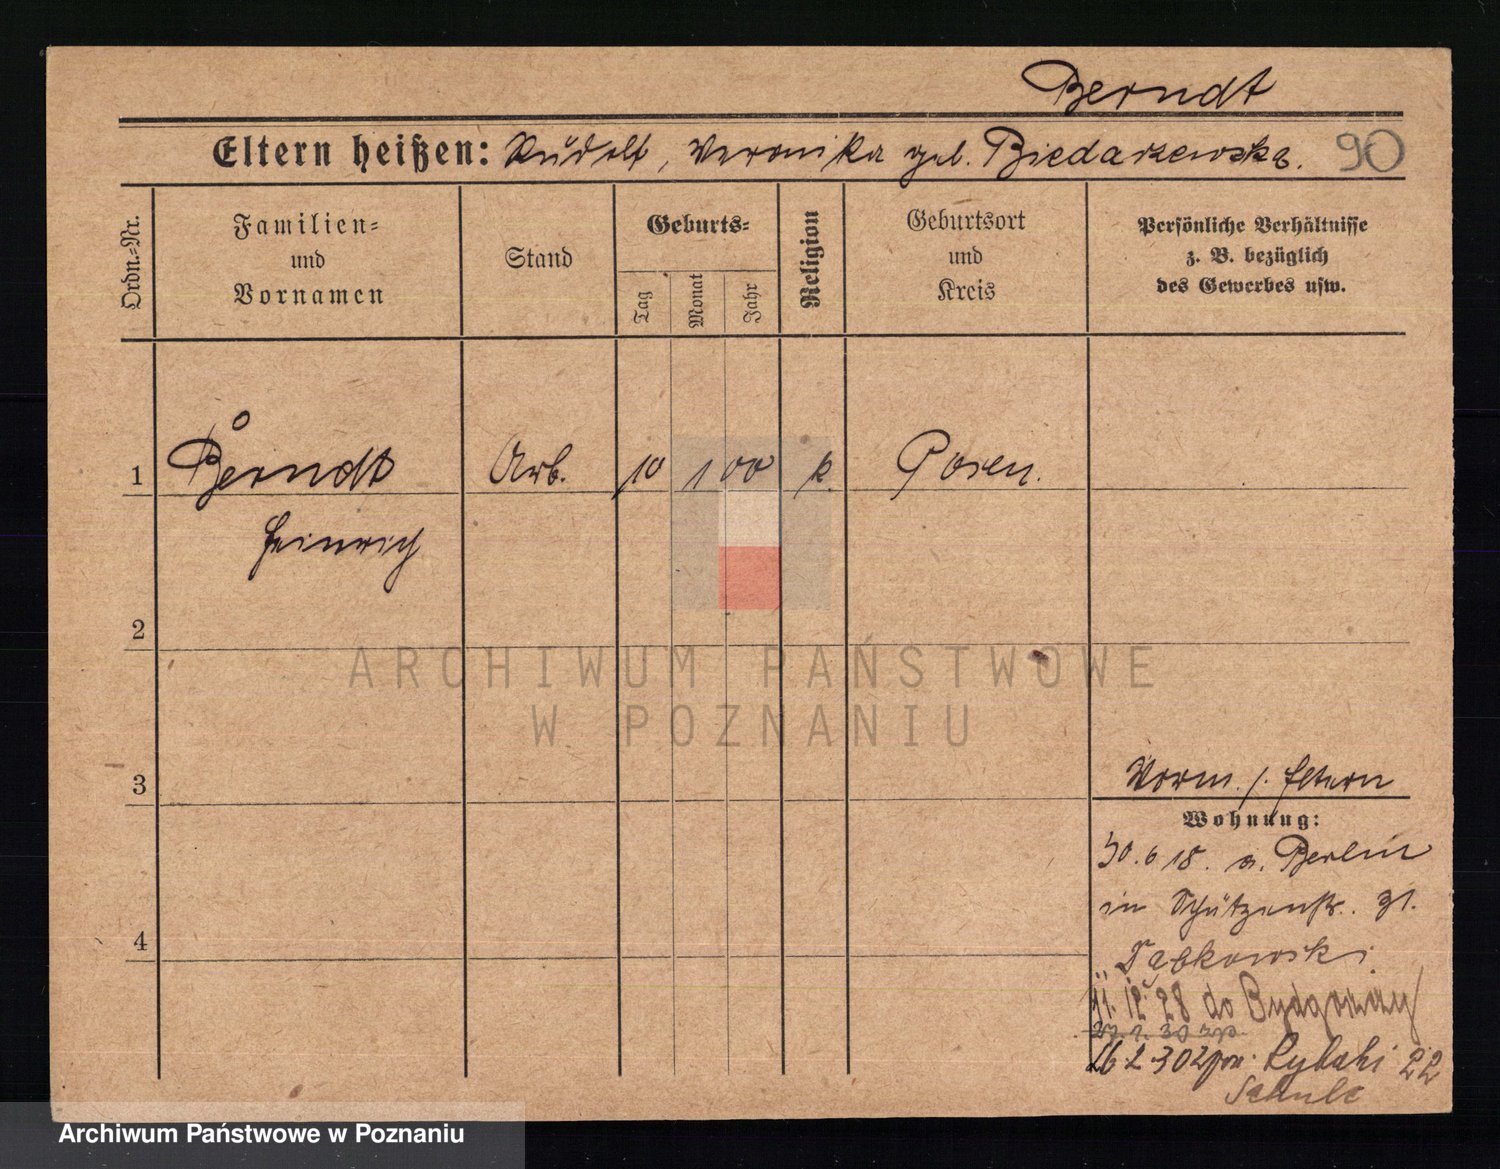 Berndt
Eltern heißen: Rudolf, Veronika geb. Biedarzewska. 90
Ordn.-Nr.
Familien-
und
Vornamen
Stand
Geburts-
Tag
Monat
Jahr
Religion
Geburtsort
und
Kreis
Persönliche Verhältnisse
z. B. bezüglich
des Gewerbes usw.
1 Berndt Arb. 10 1 00 k. Posen.
Heinrich
2
3
4
ARCHIWUM PAŃSTWOWE
W POZNANIU
Vorm. /. Eltern
Wohnung:
30.6 18. a. Berlin
in Schützenstr. 31.
11. 12. 28 do Bydgoszczy
26 2. 30 Rybaki 22
Schulz
Archiwum Państwowe w Poznaniu